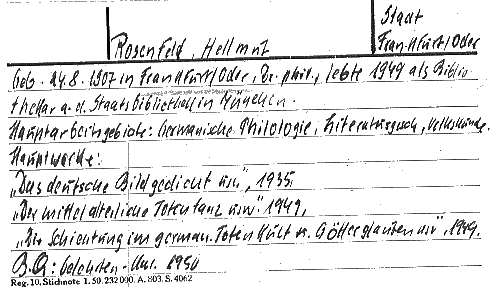 Rosenfeld, Hellmut
Stadt
Frankfurt/Oder
geb. 24.8.1907 in Frankfurt/Oder, Dr. phil., lebte 1949 als Biblio
thekar a. d. Staatsbibliothek in München.
Hauptarbeitsgebiete: Germanische Philologie, Literaturgesch., Volkskunde.
Hauptwerke:
„Das deutsche Bildgedicht usw", 1935,
„Der mittelalterliche Totentanz usw." 1949,
„Die Schichtung im german. Totenkult u. Götterglauben usw", 1949.
B.Q.: Gelehrten-Kal. 1950
Reg. 10. Stichnote 1. 50. 232 000. A. 803. S. 4062